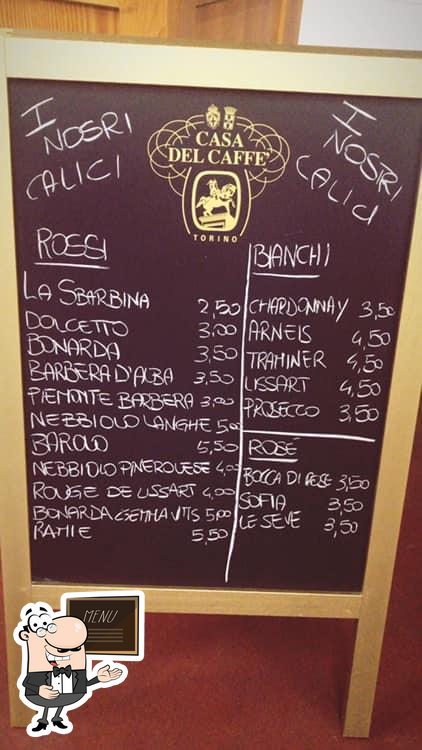 I NOSRI CALICI
CASA
DEL CAFFE'
TORINO
I NOSRI CALICI
ROSSI
LA SBARBINA 2,50
DOLCETTO 3,00
BONARDA 3,50
BARBERA D'ALBA 3,50
PIEMONTE BARBERA 3,00
NEBBIOLO LANGHE 5,00
BAROLO 5,50
NEBBIOLO PINEROLESE 4,00
ROUGE DE LISSART 4,00
BONARDA GEMMA VITIS 5,00
RAMIE 5,50
BIANCHI
CHARDONNAY 3,50
ARNEIS 4,50
TRAMINER 4,50
LISSART 4,50
PROSECCO 3,50
ROSÉ
BOCCA DI ROSE 3,50
SOFIA 3,50
LE SEVE 3,50
MENU